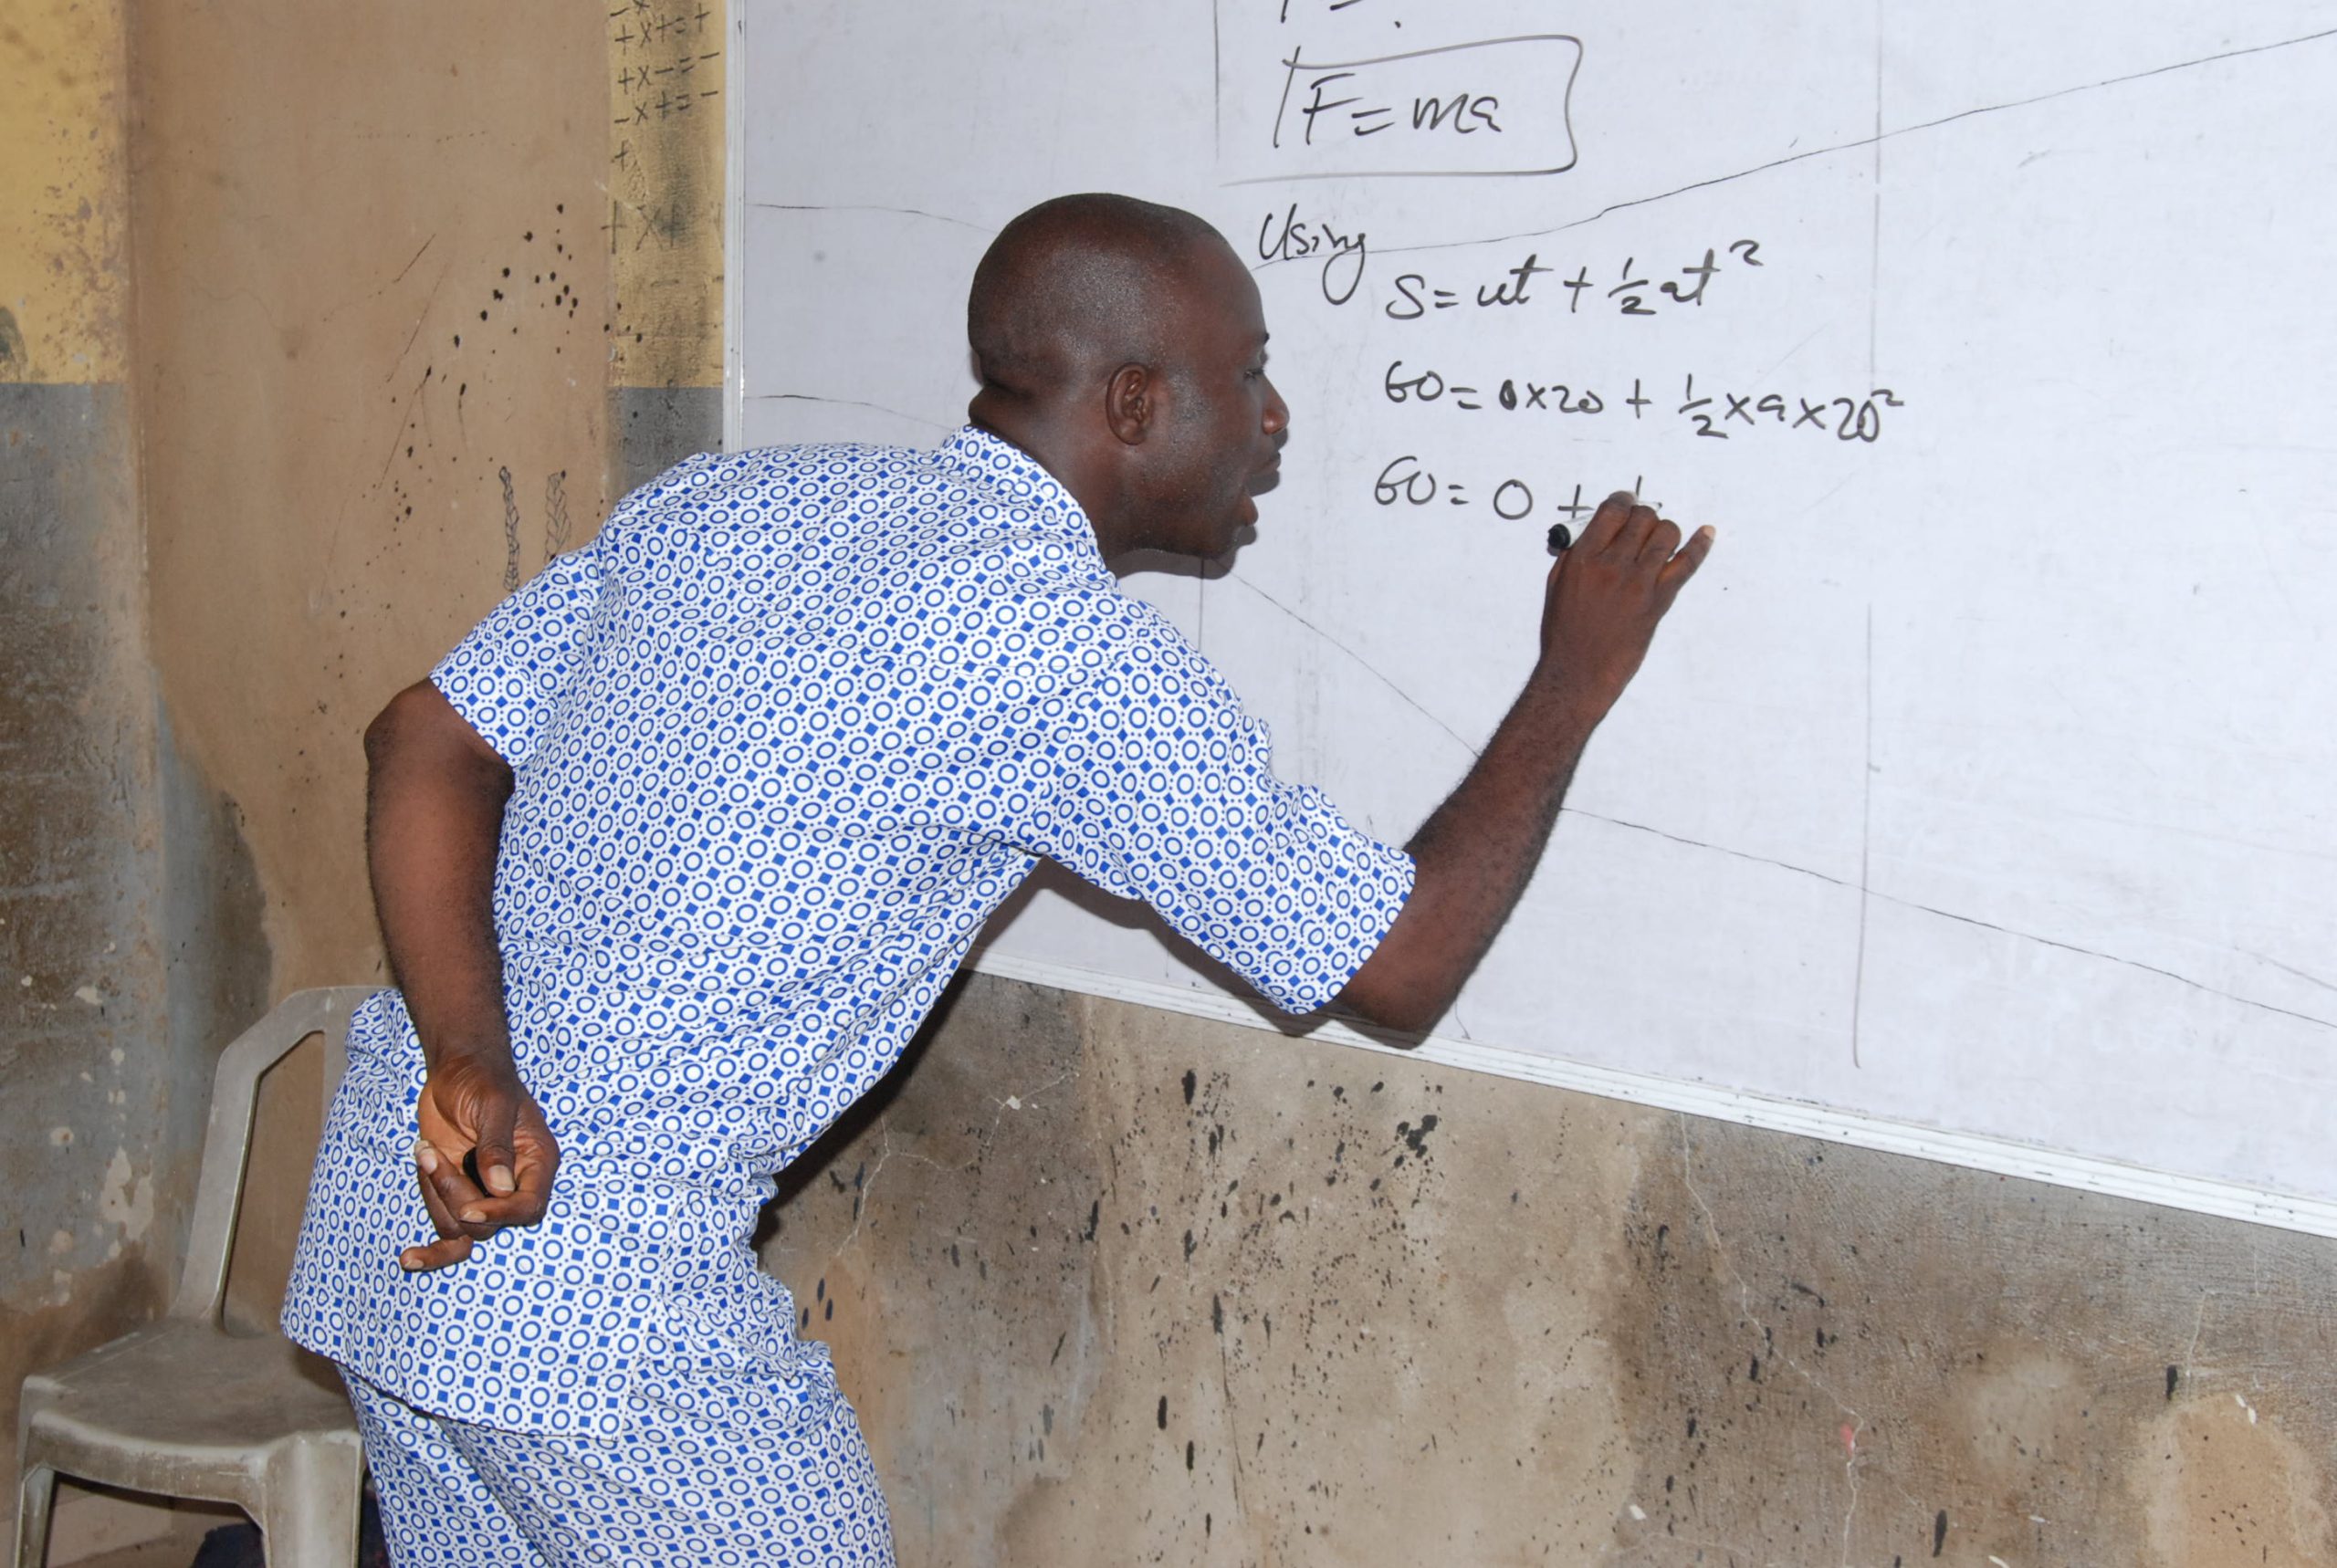 +x+=+
+x-=-
-x+=-
+
+x+
F=ma
Using
S=ut + ½at²
60=0x20 + ½xax20²
60= 0 +